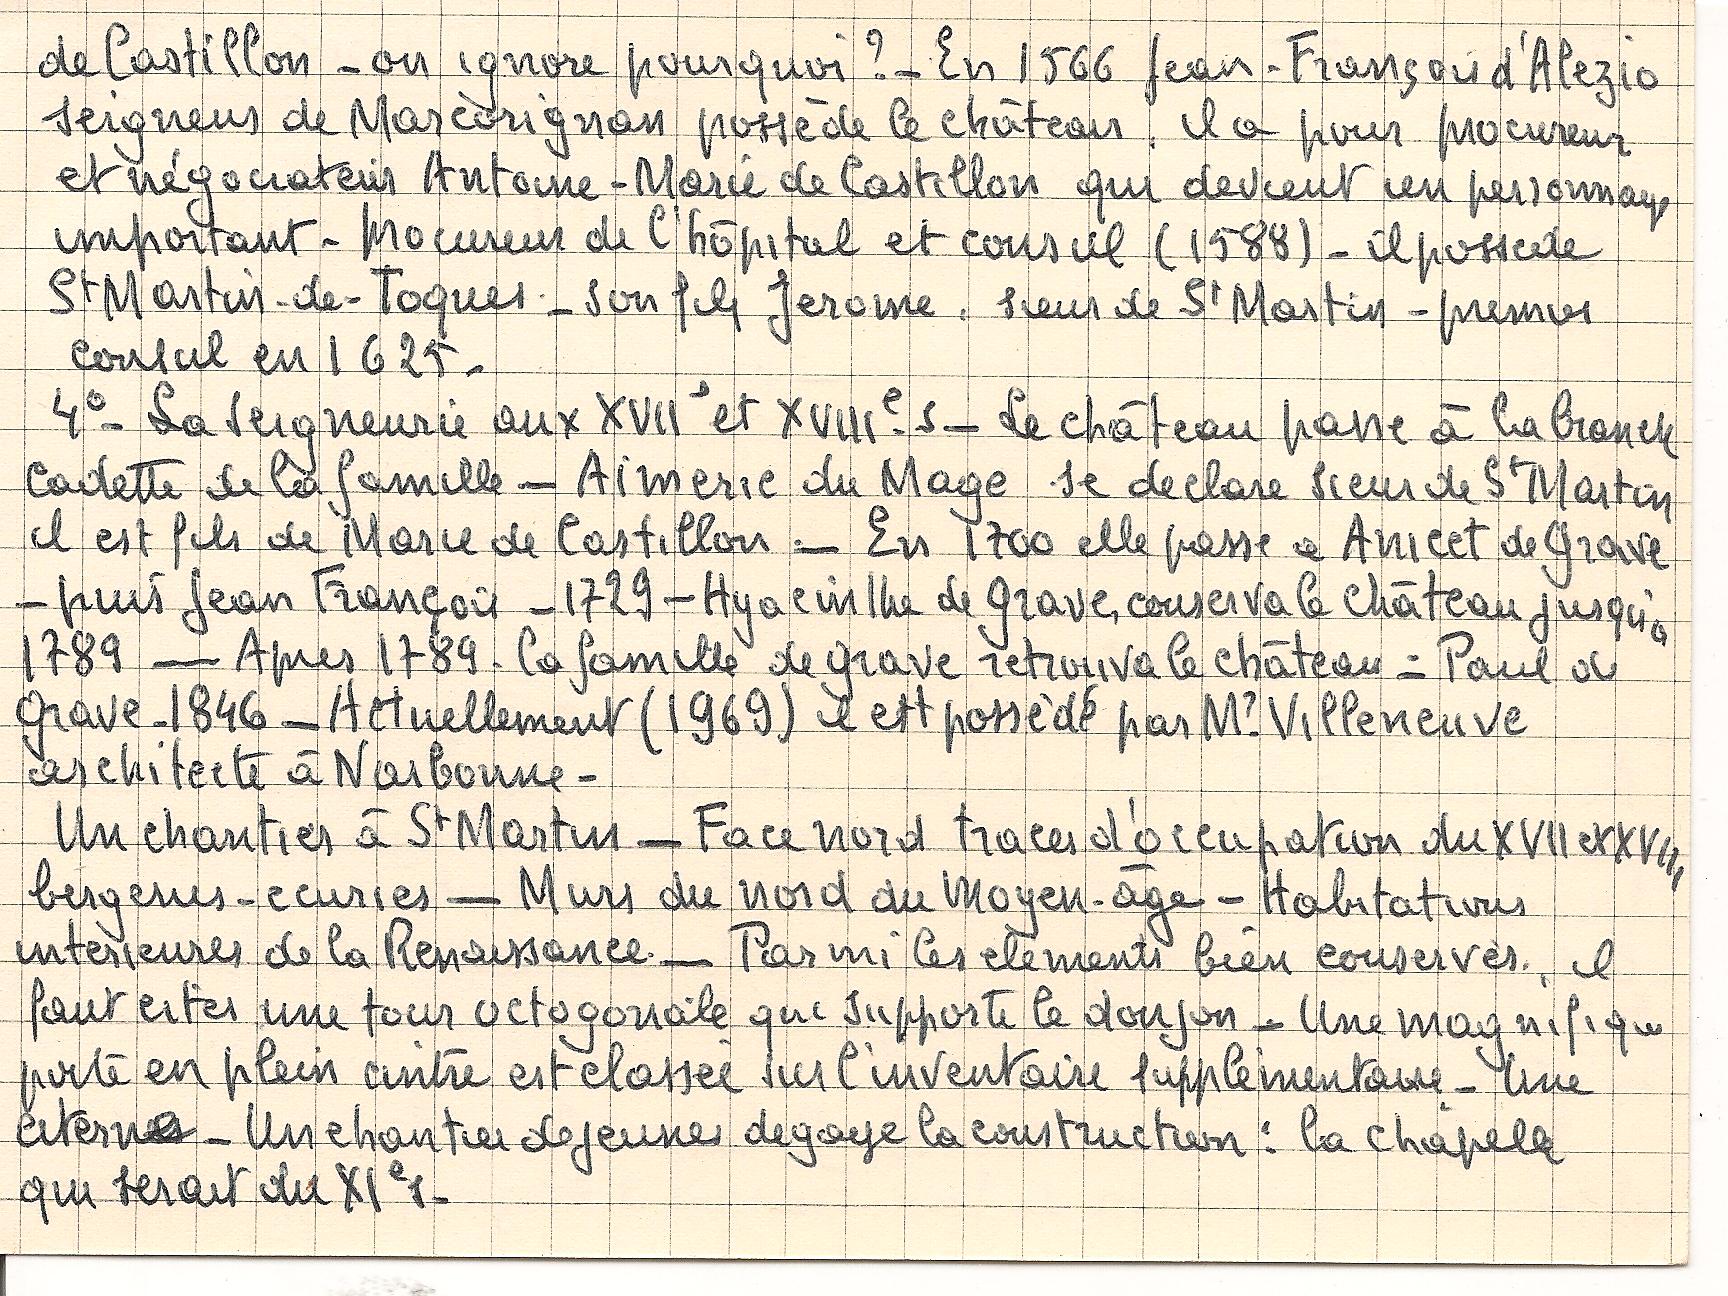 de Castillon - on ignore pourquoi ? - En 1566 Jean-François d'Alezio
seigneur de Marcorignan possède le château. il a pour procureur
et négociateur Antoine-Marie de Castillon qui devient un personnage
important - Procureur de l'hôpital et consul (1588) - il possede
St Martin-de-Toques - son fils Jerome, sieur de St Martin - premier
consul en 1625 -
4° - La Seigneurie aux XVIIe et XVIIIe s - Le château passe à la branche
cadette de la famille - Aimeric du Mage se declare sieur de St Martin
il est fils de Marie de Castillon - En 1700 elle passe a Anicet de Grave
- puis Jean François - 1729 - Hyacinthe de Grave, conserva le château jusqu'à
1789 - Apres 1789. la famille de Grave retrouva le château - Paul de
Grave - 1846 - Actuellement (1969) il est possédé par Mr Villeneuve
architecte à Narbonne -
Un chantier à St Martin - Face nord traces d'occupation du XVII et XVIII
bergeries - ecuries - Murs du nord du Moyen-âge - Habitations
interieures de la Renaissance. - Parmi les elements bien conservés, il
faut citer une tour octogonale qui supporte le donjon - Une magnifique
porte en plein cintre est classée sur l'inventaire supplémentaire - Une
citerne - Un chantier de jeunes degage la construction : la chapelle
qui serait du XIe s -